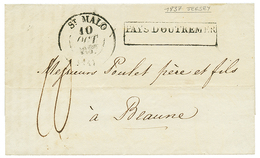 1837 JERSEY
ST MALO
10
OCT
PAYS D'OUTREMER
Messieurs Poulet père et fils
à Beaune